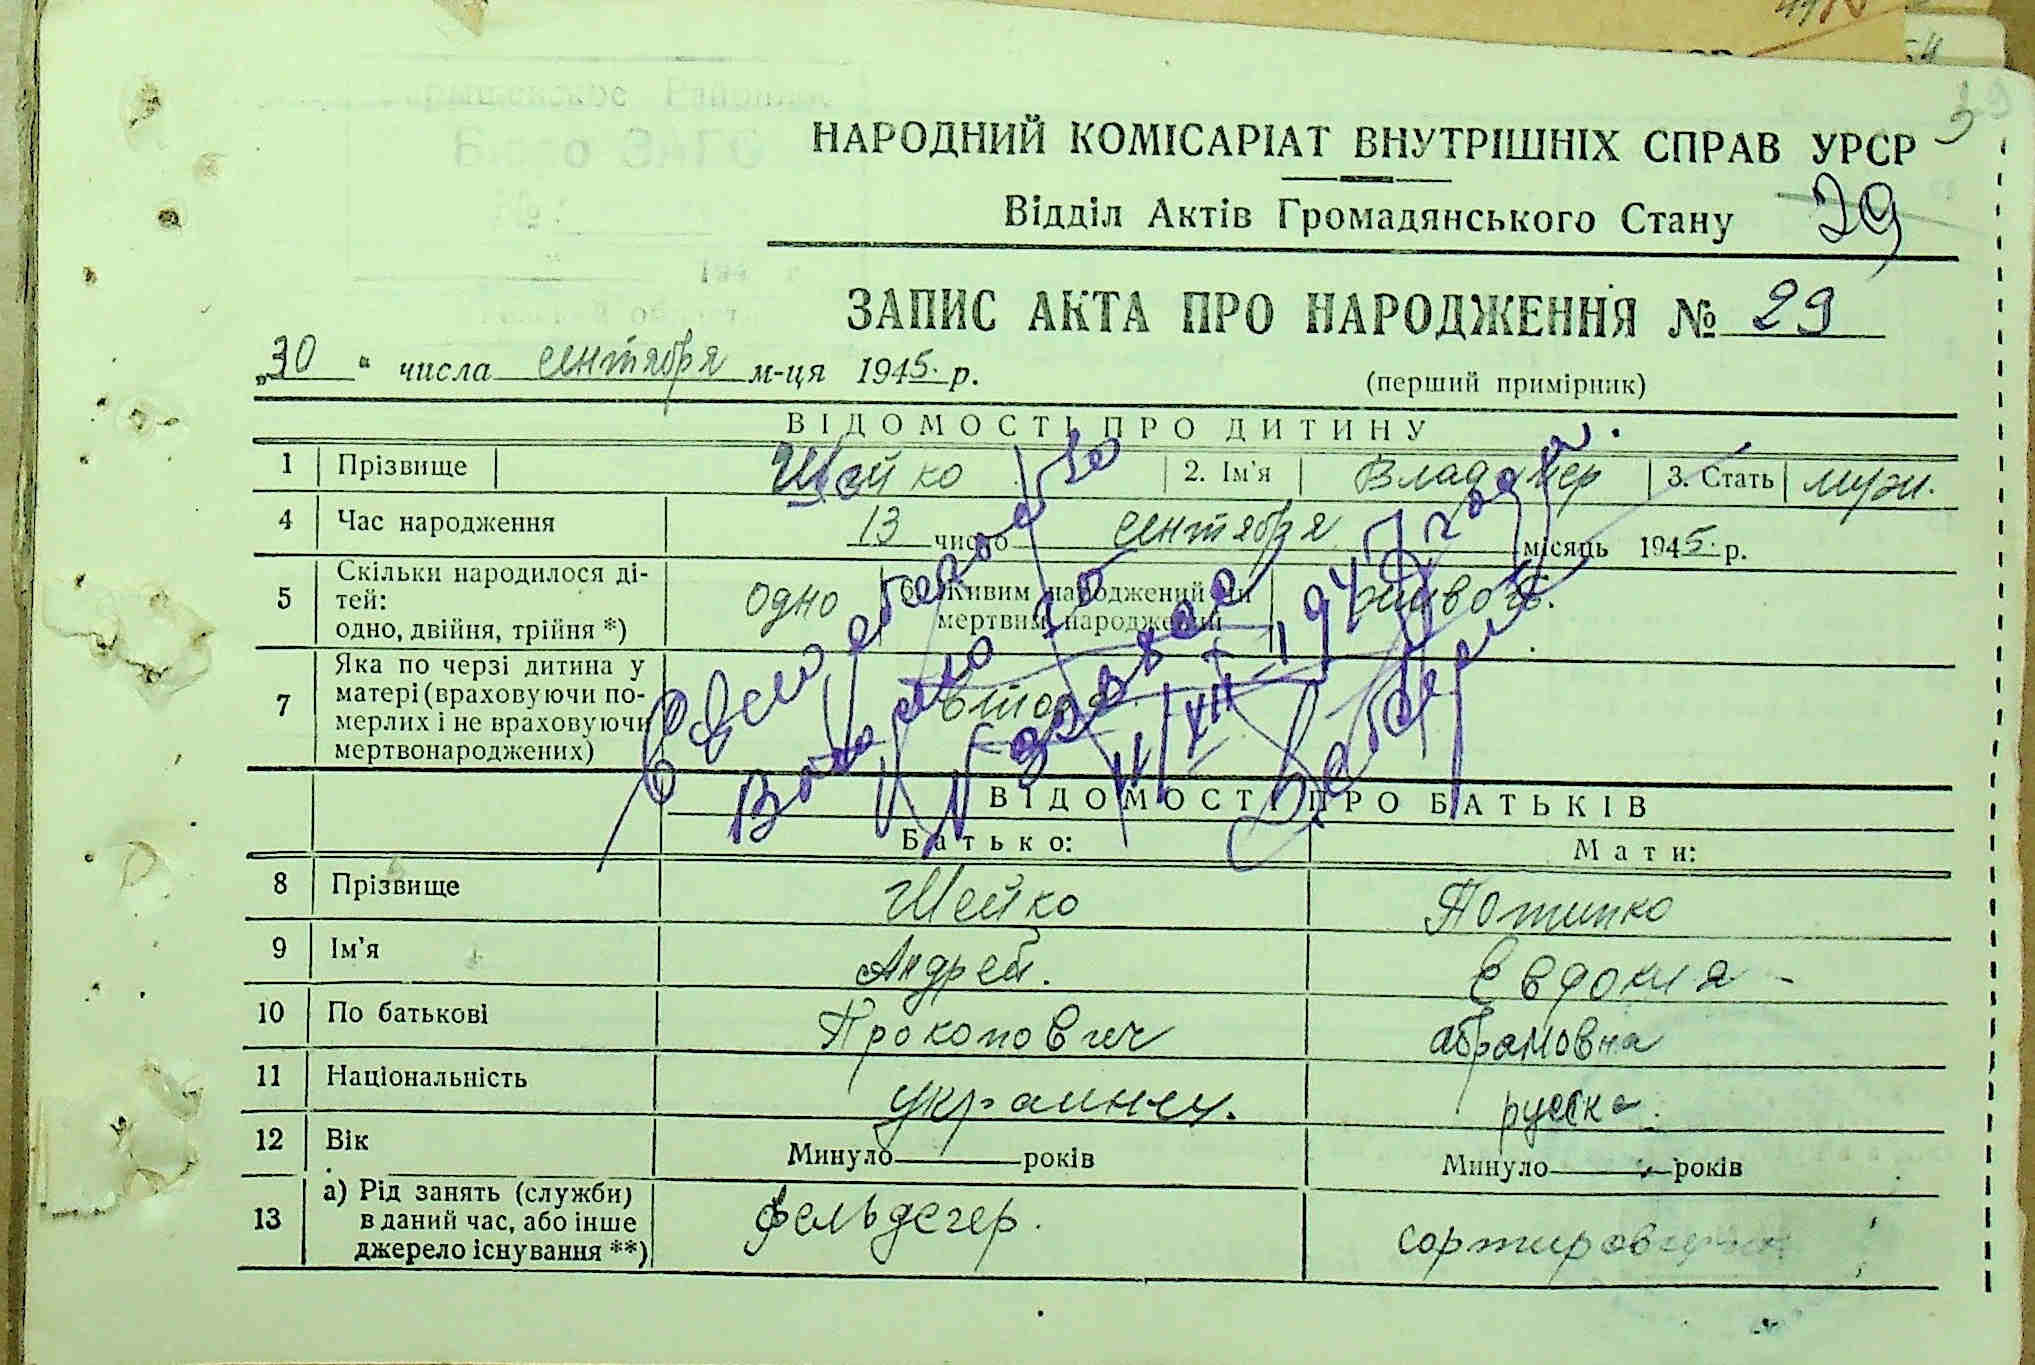 НАРОДНИЙ КОМІСАРІАТ ВНУТРІШНІХ СПРАВ УРСР
Відділ Актів Громадянського Стану 29
ЗАПИС АКТА ПРО НАРОДЖЕННЯ № 29
„30 “ числа сентября м-ця 1945. р.
(перший примірник)
ВІДОМОСТІ ПРО ДИТИНУ
1 Прізвище Шейко 2. Ім'я Владимер 3. Стать муж.
4 Час народження 13 число сентября місяць 1945. р.
5 Скільки народилося ді-
тей:
одно, двійня, трійня *) одно
6 Живим народжений чи
мертвим народжений живой.
7 Яка по черзі дитина у
матері (враховуючи по-
мерлих і не враховуючи
мертвонароджених) вторая
1947 года
ВІДОМОСТІ ПРО БАТЬКІВ
Батько: Мати:
8 Прізвище Шейко Потипко
9 Ім'я Андрей. Евдокия -
10 По батькові Прокопович Абрамовна
11 Національність украинец. русска.
12 Вік Минуло років Минуло років
13 а) Рід занять (служби)
в даний час, або інше
джерело існування **) фельдегер. сортировщица